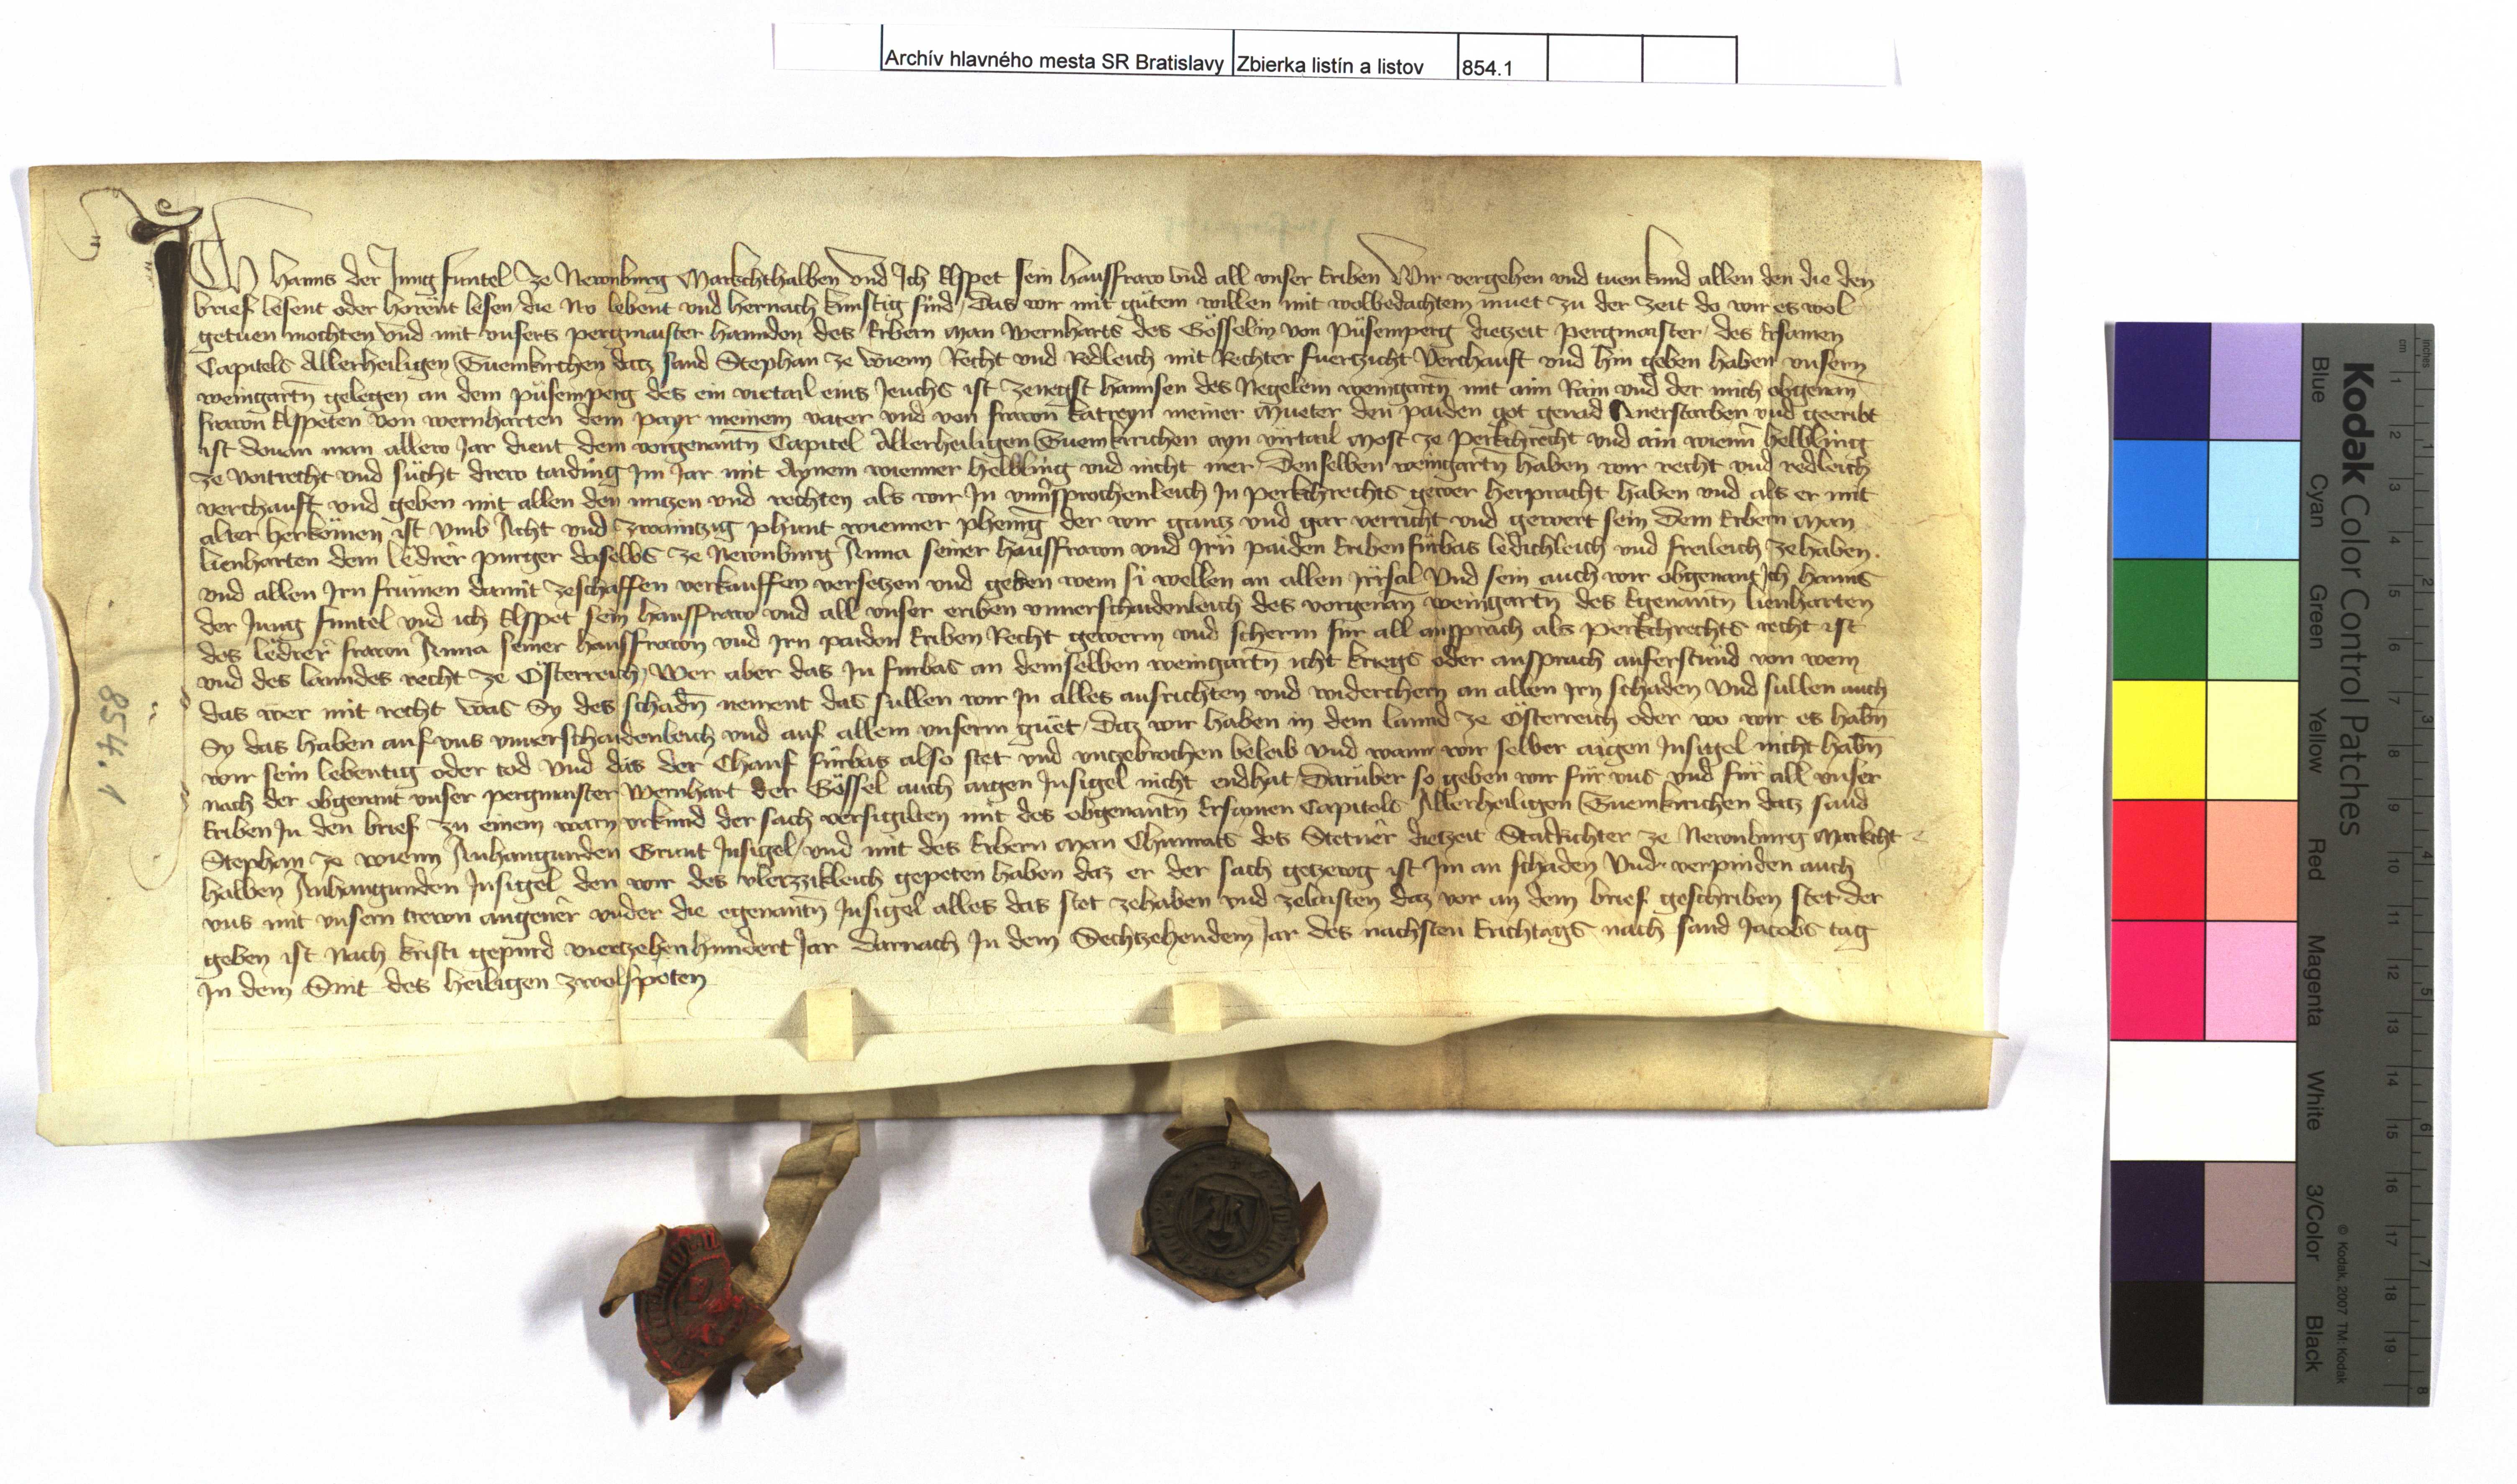 Archív hlavného mesta SR Bratislavy Zbierka listín a listov 854.1
Ich Hanns der Jung Funtel ze Newnburg Markchthalben und Ich Elspet sein hausfraw und all unser Eriben Wir vergehen und tuen kund allen den die den
brief lesent oder horent lesen die nu lebent und hernach kunftig sind, Das wir mit gütem willen mit wolbedachtem muet zu der zeit do wir es wol
getuen mochten und mit unsers pergmaister hannden des Erbern man Wernharts des Gösselin von Püsemperg dietzeit pergmaister, des Ersamen
Capitels Allerheiligen Tuemkirchen datz sand Stephan ze Wienn Recht und redleich mit Rechter fuertzicht Verchauft und hin geben haben unsern
weingartn̄ gelegen an dem püsemperg des ein viertail eins Jeuchs ist zenegst hannsen des Negelein weingartn̄ mit aim Rain und der mich obgenan̄
frawn̄ Elspeten von wernharten dem payr meinem vater und von frawn katreyn meiner Mueter den paiden got genad Anerstarben und geeribt
ist dovon man allew Jar dient dem vorgenantn̄ Capitel Allerheiligen Tuemkirichen ayn virtail most ze perkchrecht und ain wienn̄ helbling
ze voitrecht und sücht drew taiding Im Jar mit Aynem wienner helbling und nicht mer, Denselben weingartn̄ haben wir recht und redleich
verchauft und geben mit allen den nutzen und rechten als wir In unūsprochenleich In perkchrechts gewer herpracht haben und als er mit
alter herkömen ist Umb Acht und zwaintzig phunt wienner pheniḡ der wir gantz und gar verricht und gewert sein Dem Erbern man
Lienharten dem ledrer purger daselbs ze Newnburg Anna seiner hausfrawn und Irn̄ paiden Eriben fürbas ledichleich und freileich zehaben.
und allen Irn frumen damit zeschaffen verkauffen versetzen und geben wem si wellen an allen Irrsal Und sein auch wir obgenant Ich Hanns
der Jung Funtel und ich Elspet sein hausfraw und all unser eriben unverschaidenleich des vorgenan̄ weingartn̄ des Egenantn̄ lienharten
des ledrer frawn Anna seiner hausfrawn und Irn paiden Eriben Recht gewern und scherm für all ansprach als perkchrechts recht ist
und des Lanndes recht ze Österreich, Wer aber das In fürbas an demselben weingartn̄ icht kriegs oder ansprach auferstünd von wem
das wer mit recht was Sy des schadn̄ nement das sullen wir In alles ausrichten und widerchern an allen Irn schaden Und sullen auch
Sy das haben auf uns unverschaidenleich und auf allem unserm guet, Daz wir haben in dem Lannd ze Österreich oder wo wir es habn̄
wir sein lebentig oder tod Und das der Chauf fürbas also stet und untzebrochen beleib und wann wir selber aigen Insigel nicht habn̄
nach der obgenant unser pergmaister Wernhart der Gössel auch aigen Insigel nicht endhat Darüber so geben wir für uns und für all unser
Eriben In den brief zu einem warn urkund der sach versigilten mit des obgenantn̄ Ersamen Capitels Allerheiligen Tuemkirichen datz sand
Stephan ze wienn Anhangunden Grunt Insigel, und mit des Erbern man Chunrats des Stetner dietzeit Statrichter ze Newnburg Markcht
halben Anhangunden Insigel den wir des vleizzikleich gepeten haben daz er der sach getzewg ist Im an schaden Und verpinden auch
uns mit unsern trewn angever under die egenantn̄ Insigel alles das stet zehaben und zelaisten daz vor an dem brief geschriben stet der
geben ist Nach kristi gepurd viertzehenhundert Jar Darnach In dem Sechtzehendem Jar des nachsten Erichtags nach sand Jacobs tag
In dem Snit des heiligen zwelfpoten
854.1
Kodak Color Control Patches
Blue Cyan Green Yellow Red Magenta White 3/Color Black
© Kodak, 2007 TM: Kodak
cm 1 2 3 4 5 6 7 8 9 10 11 12 13 14 15 16 17 18 19
inches 1 2 3 4 5 6 7 8